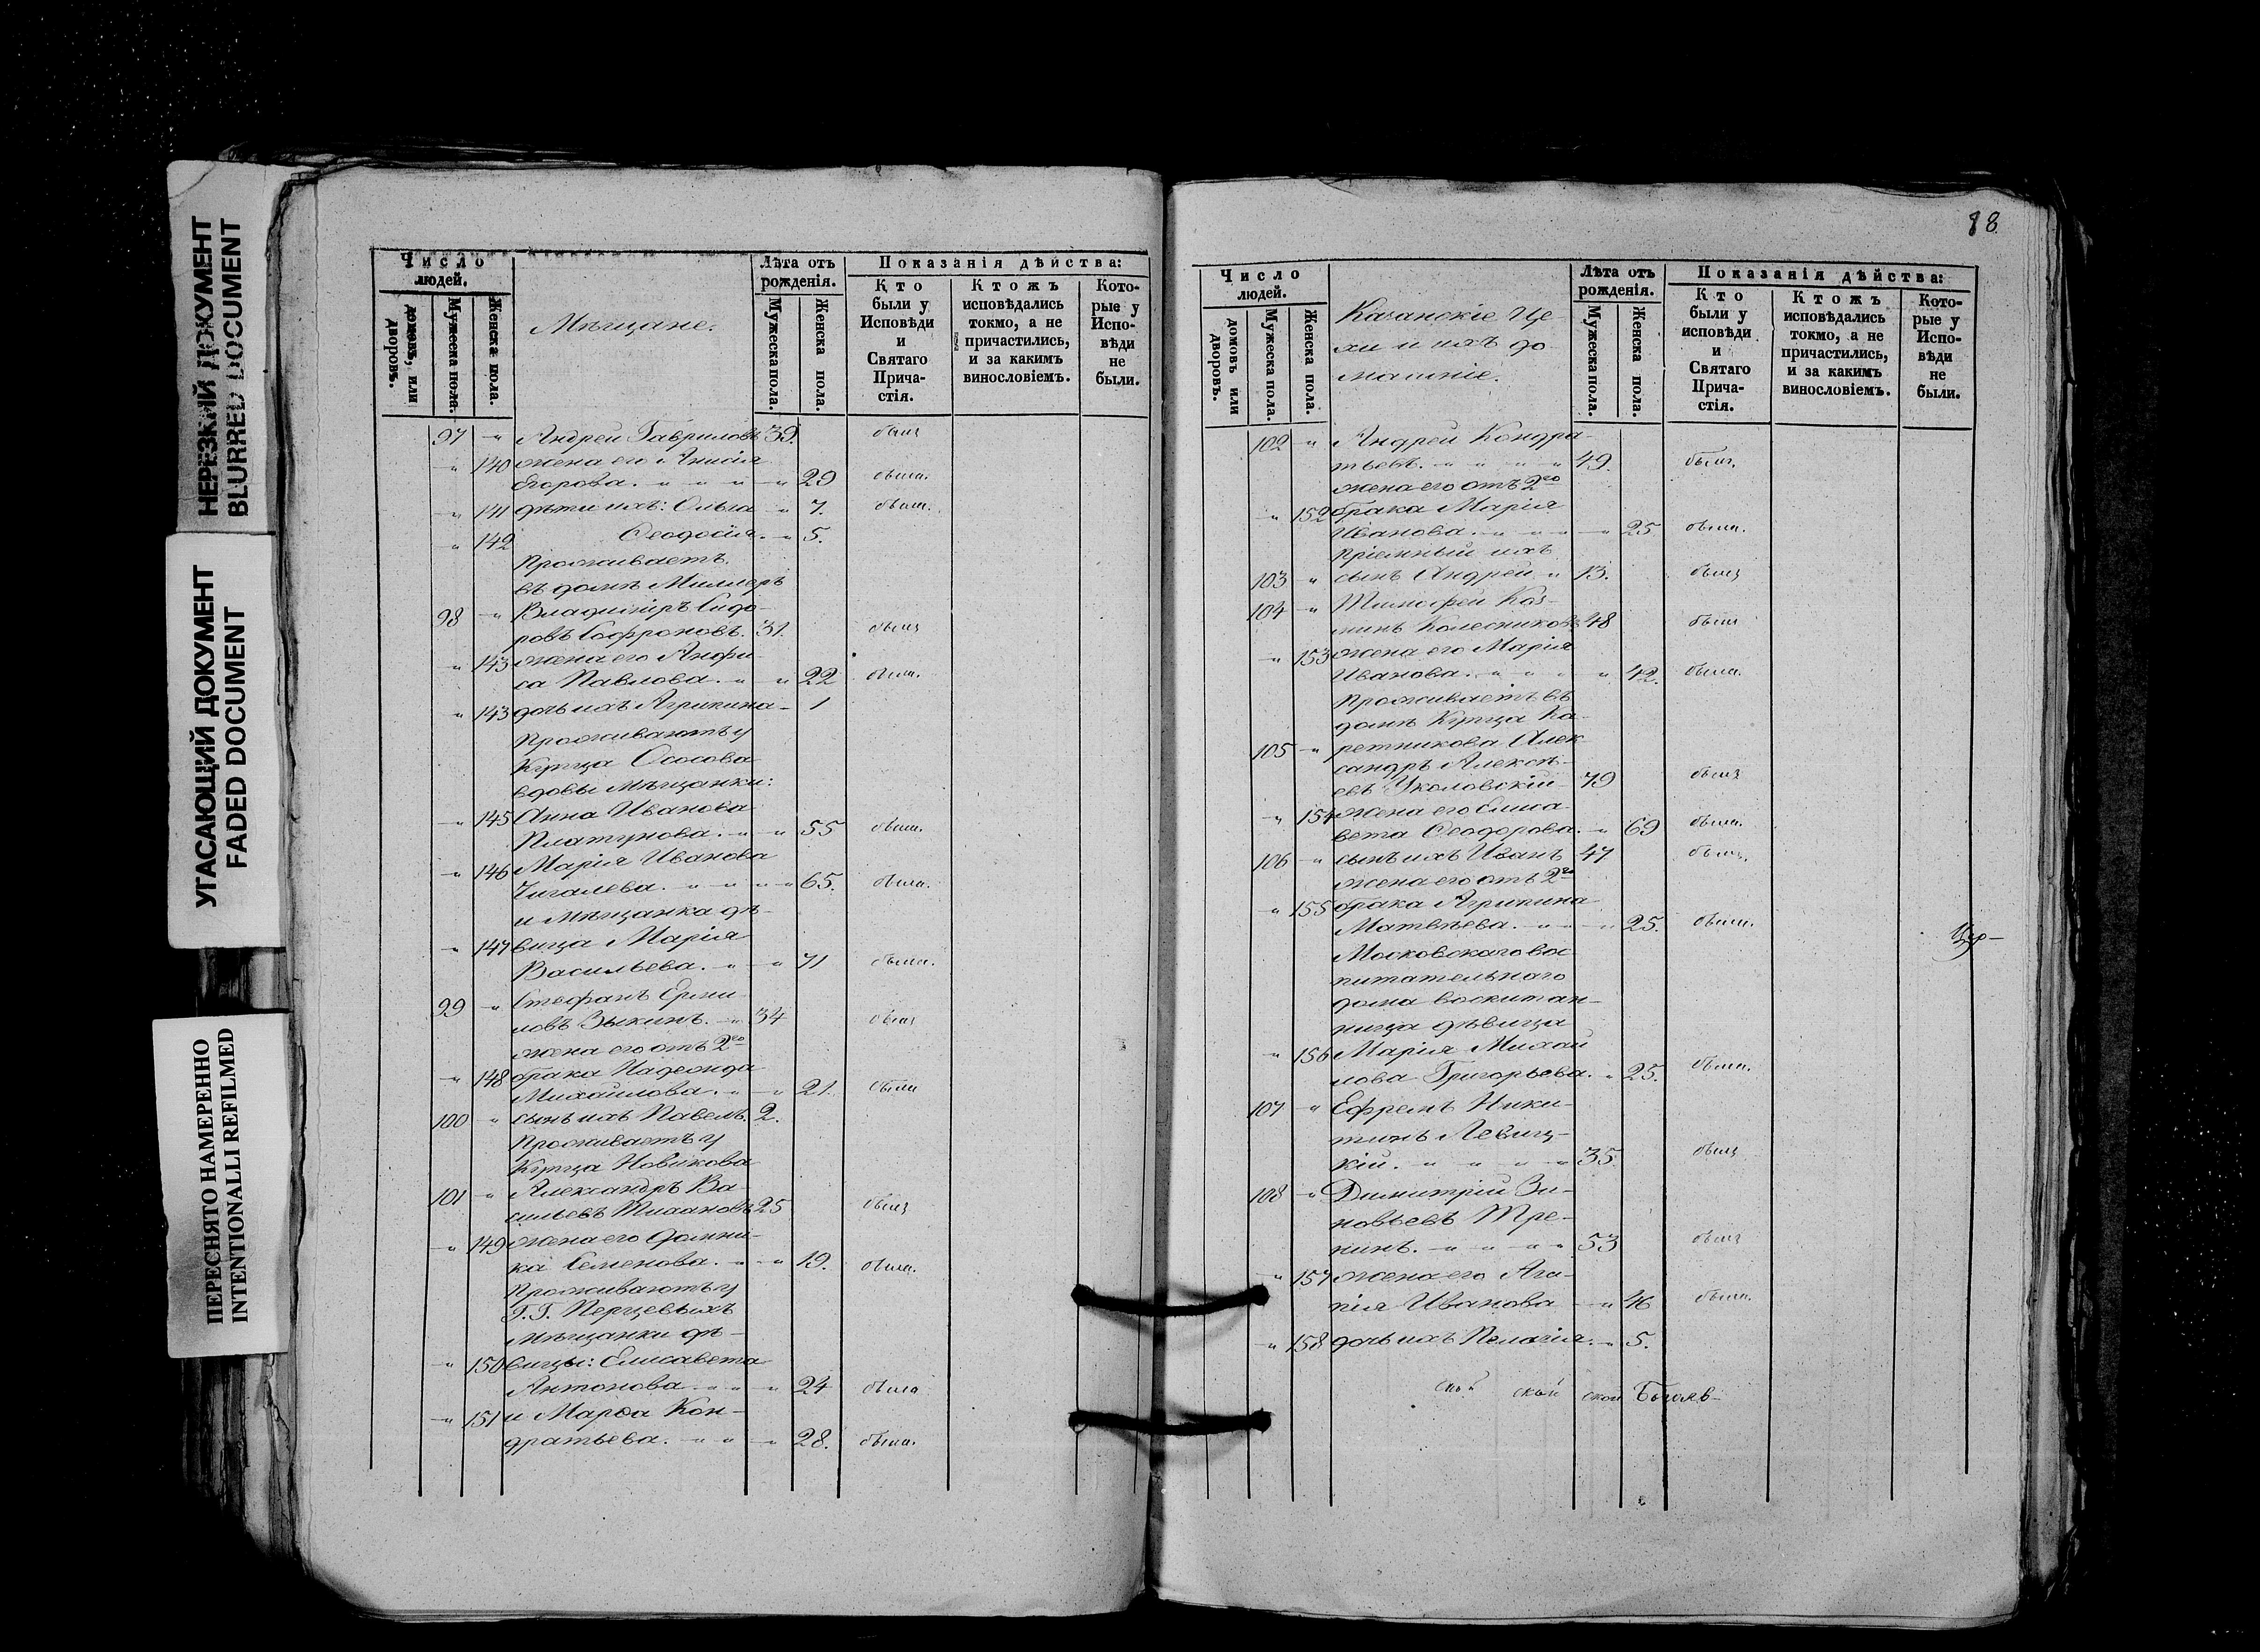 НЕРЕЗКИЙ ДОКУМЕНТ
BLURRED DOCUMENT
УГАСАЮЩИЙ ДОКУМЕНТ
FADED DOCUMENT
ПЕРЕСНЯТО НАМЕРЕННО
INTENTIONALLI REFILMED
Число людей.
домовъ, или дворовъ.
Мужеска пола.
Женска пола.
Мѣщане.
Лѣта отъ рожденія.
Мужеска пола.
Женска пола.
Показанія дѣйства:
Кто были у Исповѣди и Святаго Прича-стія.
Ктожъ исповѣдались токмо, а не причастились, и за какимъ винословіемъ.
Кото-рые у Испо-вѣди не были.
97 " Андрей Гавриловъ 39. былъ
" 140 жена его Анисія
Егорова. " " " " 29 была.
" 141 дѣти ихъ: Ольга " 7. была.
" 142 Ѳеодосія. " 5.
Проживаетъ
въ домѣ Миллеръ
98 " Владиміръ Сидо-
ровъ Софроновъ. 31. былъ
" 143 жена его Анфи-
са Павлова. " " 22 была.
" 143 дочь ихъ Агрипина 1
Проживаютъ у
Купца Ососова
вдовы мѣщанки:
" 145 Анна Иванова
Платунова. " " 55 была.
" 146 Марія Иванова
Чигалева. " " " " 65. была.
и Мѣщанка дѣ-
" 147 вица Марія
Васильева. " " 71 была.
99 " Стефанъ Ерми
ловъ Зыкинъ. " 34 былъ
жена его отъ 2го
" 148 брака Надежда
Михайлова. " " 21. была
100 " сынъ ихъ Павелъ. 2.
Проживаетъ у
Купца Новикова
101 " Александръ Ва-
сильевъ Тихановъ 25 былъ
" 149 жена его Домни-
ка Семенова. " " 19. была.
Проживаютъ у
Г.Г. Перцевыхъ
мѣщанки дѣ-
" 150 вицы: Елисавета
Антонова " " " 24 была
" 151 и Марѳа Кон-
дратьева. " " " 28. была.
88
Число людей.
домовъ или дворовъ.
Мужеска пола.
Женска пола.
Казанскіе Це-
хи и ихъ до
машніе.
Лѣта отъ рожденія.
Мужеска пола.
Женска пола.
Показанія дѣйства:
Кто были у исповѣди и Святаго Прича-стія.
Ктожъ исповѣдались токмо, а не причастились, и за какимъ винословіемъ.
Кото-рые у Испо-вѣди не были.
102 " Андрей Кондра-
тьевъ. " " " " 49. былъ.
жена его отъ 2го
" 152 брака Марія
Иванова. " " " " 25 была.
Пріемный ихъ
103 " сынъ Андрей " 13. былъ
104 " Тимофей Коз-
минъ Колесниковъ 48 былъ
" 153 жена его Марія
Иванова. " " " " 42. была.
Проживаетъ въ
домѣ Купца Ка-
105 " ретникова Алек-
сандръ Алексѣ-
евъ Уколовскій 79 былъ
" 154 жена его Елиса
вета Ѳеодорова. " 69 была.
106 " сынъ ихъ Иванъ 47 былъ.
жена его отъ 2го
" 155 брака Агрипина
Матвѣева. " " " 25. была.
Московскаго вос
питательнаго
дома воспитан-
ница дѣвица
" 156 Марія Михай
лова Григорьева. " 25. была.
107 " Ефремъ Ники-
тинъ Левиц-
кій. " " " " 35. былъ
108 " Димитрій Зи-
новьевъ Тре-
нинъ. " " " " 53 былъ
" 157 жена его Ага-
пія Иванова " " 46 была.
" 158 дочь ихъ Пелагія. " 5.
ской ской Богояв-
Цер-